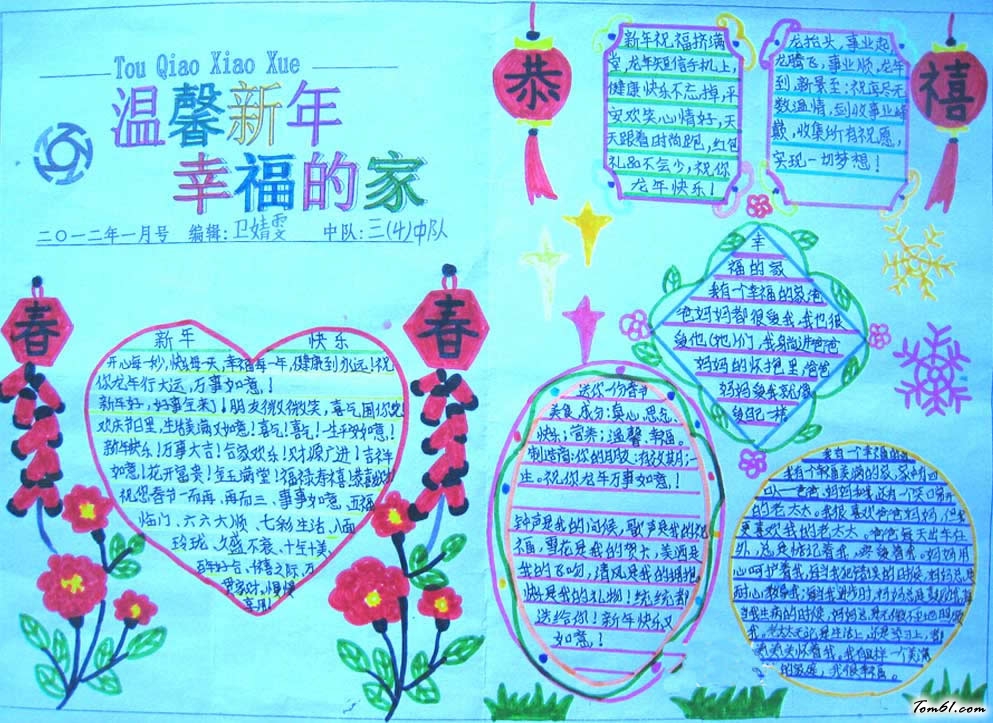 Tou Qiao Xiao Xue
温馨新年
幸福的家
二〇一二年一月号 编辑:卫婧雯 中队:三(4)中队
春
春
新年 快乐
开心每一秒,快乐每一天,幸福每一年,健康到永远!祝
你龙年行大运,万事如意!
新年好,好事全来了!朋友微微笑,喜气围你绕
欢庆节日里,生活美满又如意!喜气!喜气!一生平安如意!
新年快乐!万事大吉!合家欢乐!财源广进!吉祥
如意!花开富贵!金玉满堂!福禄寿禧!恭喜
祝您春节一而再,再而三、事事如意,五福
临门、六六大顺、七彩生活、八面
玲珑、久盛不衰、十全十美、
百年好合、禧之际、万
恭
禧
新年祝福挤满
堂,龙年短信手机上,
健康快乐不忘掉,平
安欢笑心情好,天
天跟着时尚跑,红包
礼品不会少,祝你
龙年快乐!
龙抬头,事业起,
龙腾飞,事业顺,龙年
到,新景至:祝再尽无
数温情,到收事业峰
巅,收集所有祝愿,
实现一切梦想!
幸
福的家
我有一个幸福的家,爸
爸妈妈都很爱我,我也很
爱他(她)们,我躺进爸爸
妈妈的怀抱里,爸爸
妈妈爱我就像
爱自己一样
送你一份春节
美食,成分:真心、思念、
快乐;营养:温馨、幸福。
制造商:你的朋友,有效期:一
生。祝你龙年万事如意!
钟声是我的问候,歌声是我的祝
福,雪花是我的贺卡,美酒是
我的飞吻,清风是我的拥抱
快乐是我的礼物!统统都
送给你!新年快乐又
如意!
我有一个幸福的家
我有一个幸福美满的家,家中有四
口人—爸爸、妈妈和我,还有一个笑口常开
的老太太。我很喜欢爸爸妈妈,但我
更喜欢我的老太太。爸爸每天出车在
外,总是惦记着我,
心呵护着我,每当我犯错误的时候,妈妈总是
耐心教导我;
当我生病的时候,妈妈总是
关怀着我,我有这样一个美满
的家庭,我很幸福。
Tom61.com